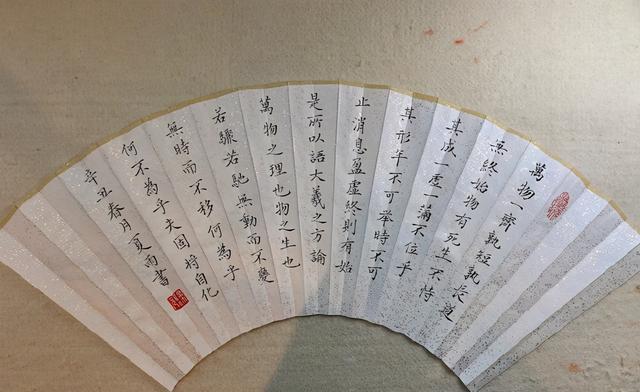 萬物一齊孰短孰長道
無終始物有死生不恃
其成一虛一滿不位乎
其形年不可举時不可
止消息盈虛終則有始
是所以語大義之方論
萬物之理也物之生也
若驟若馳無動而不變
無時而不移何為乎
何不為乎夫固将自化
辛丑春月夏雨書